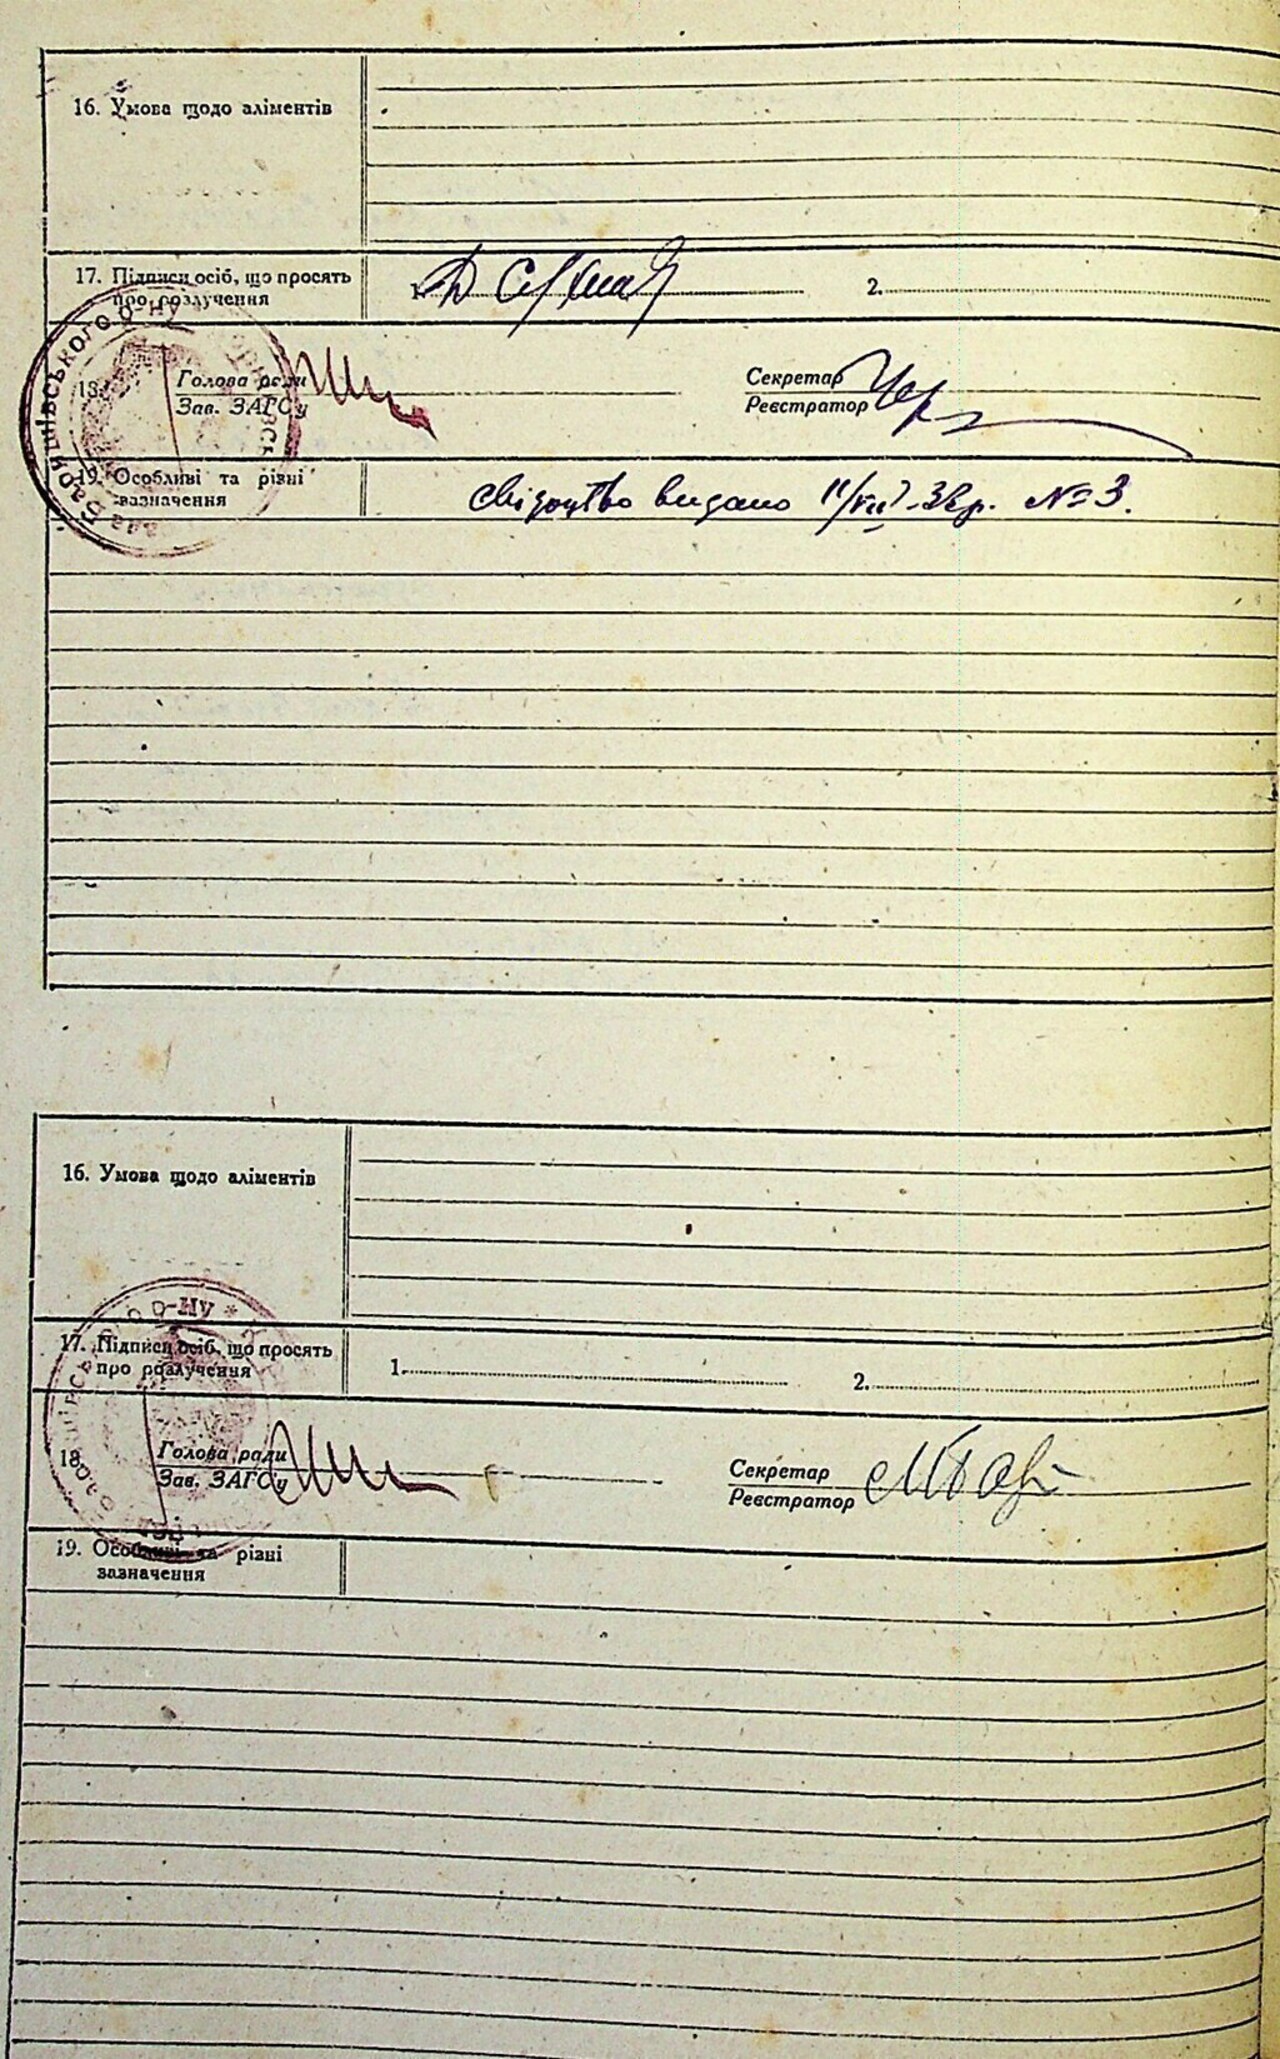 16. Умова щодо аліментів
17. Підписи осіб, що просять
про розлучення
1.
2.
Баришівського р-ну
18.
Голова ради
Зав. ЗАГСу
Секретар
Реєстратор
19. Особливі та різні
зазначення
свідоцтво видано 11/VII-38р. № 3.
16. Умова щодо аліментів
р-ну *
17. Підписи осіб, що просять
про розлучення
1.
2.
18.
Голова ради
Зав. ЗАГСу
Секретар
Реєстратор
19. Особливі та різні
зазначення